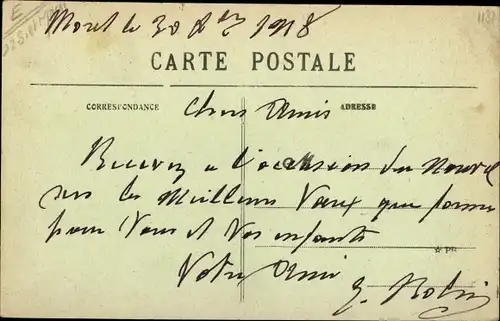 Moret le 30 Xbre 1918
CARTE POSTALE
CORRESPONDANCE
ADRESSE
Chers Amis
Recevez a l'occasion du Nouvel
les Meilleurs Vœux que forme
pour Vous et Vos enfants
Votre Ami
Robin